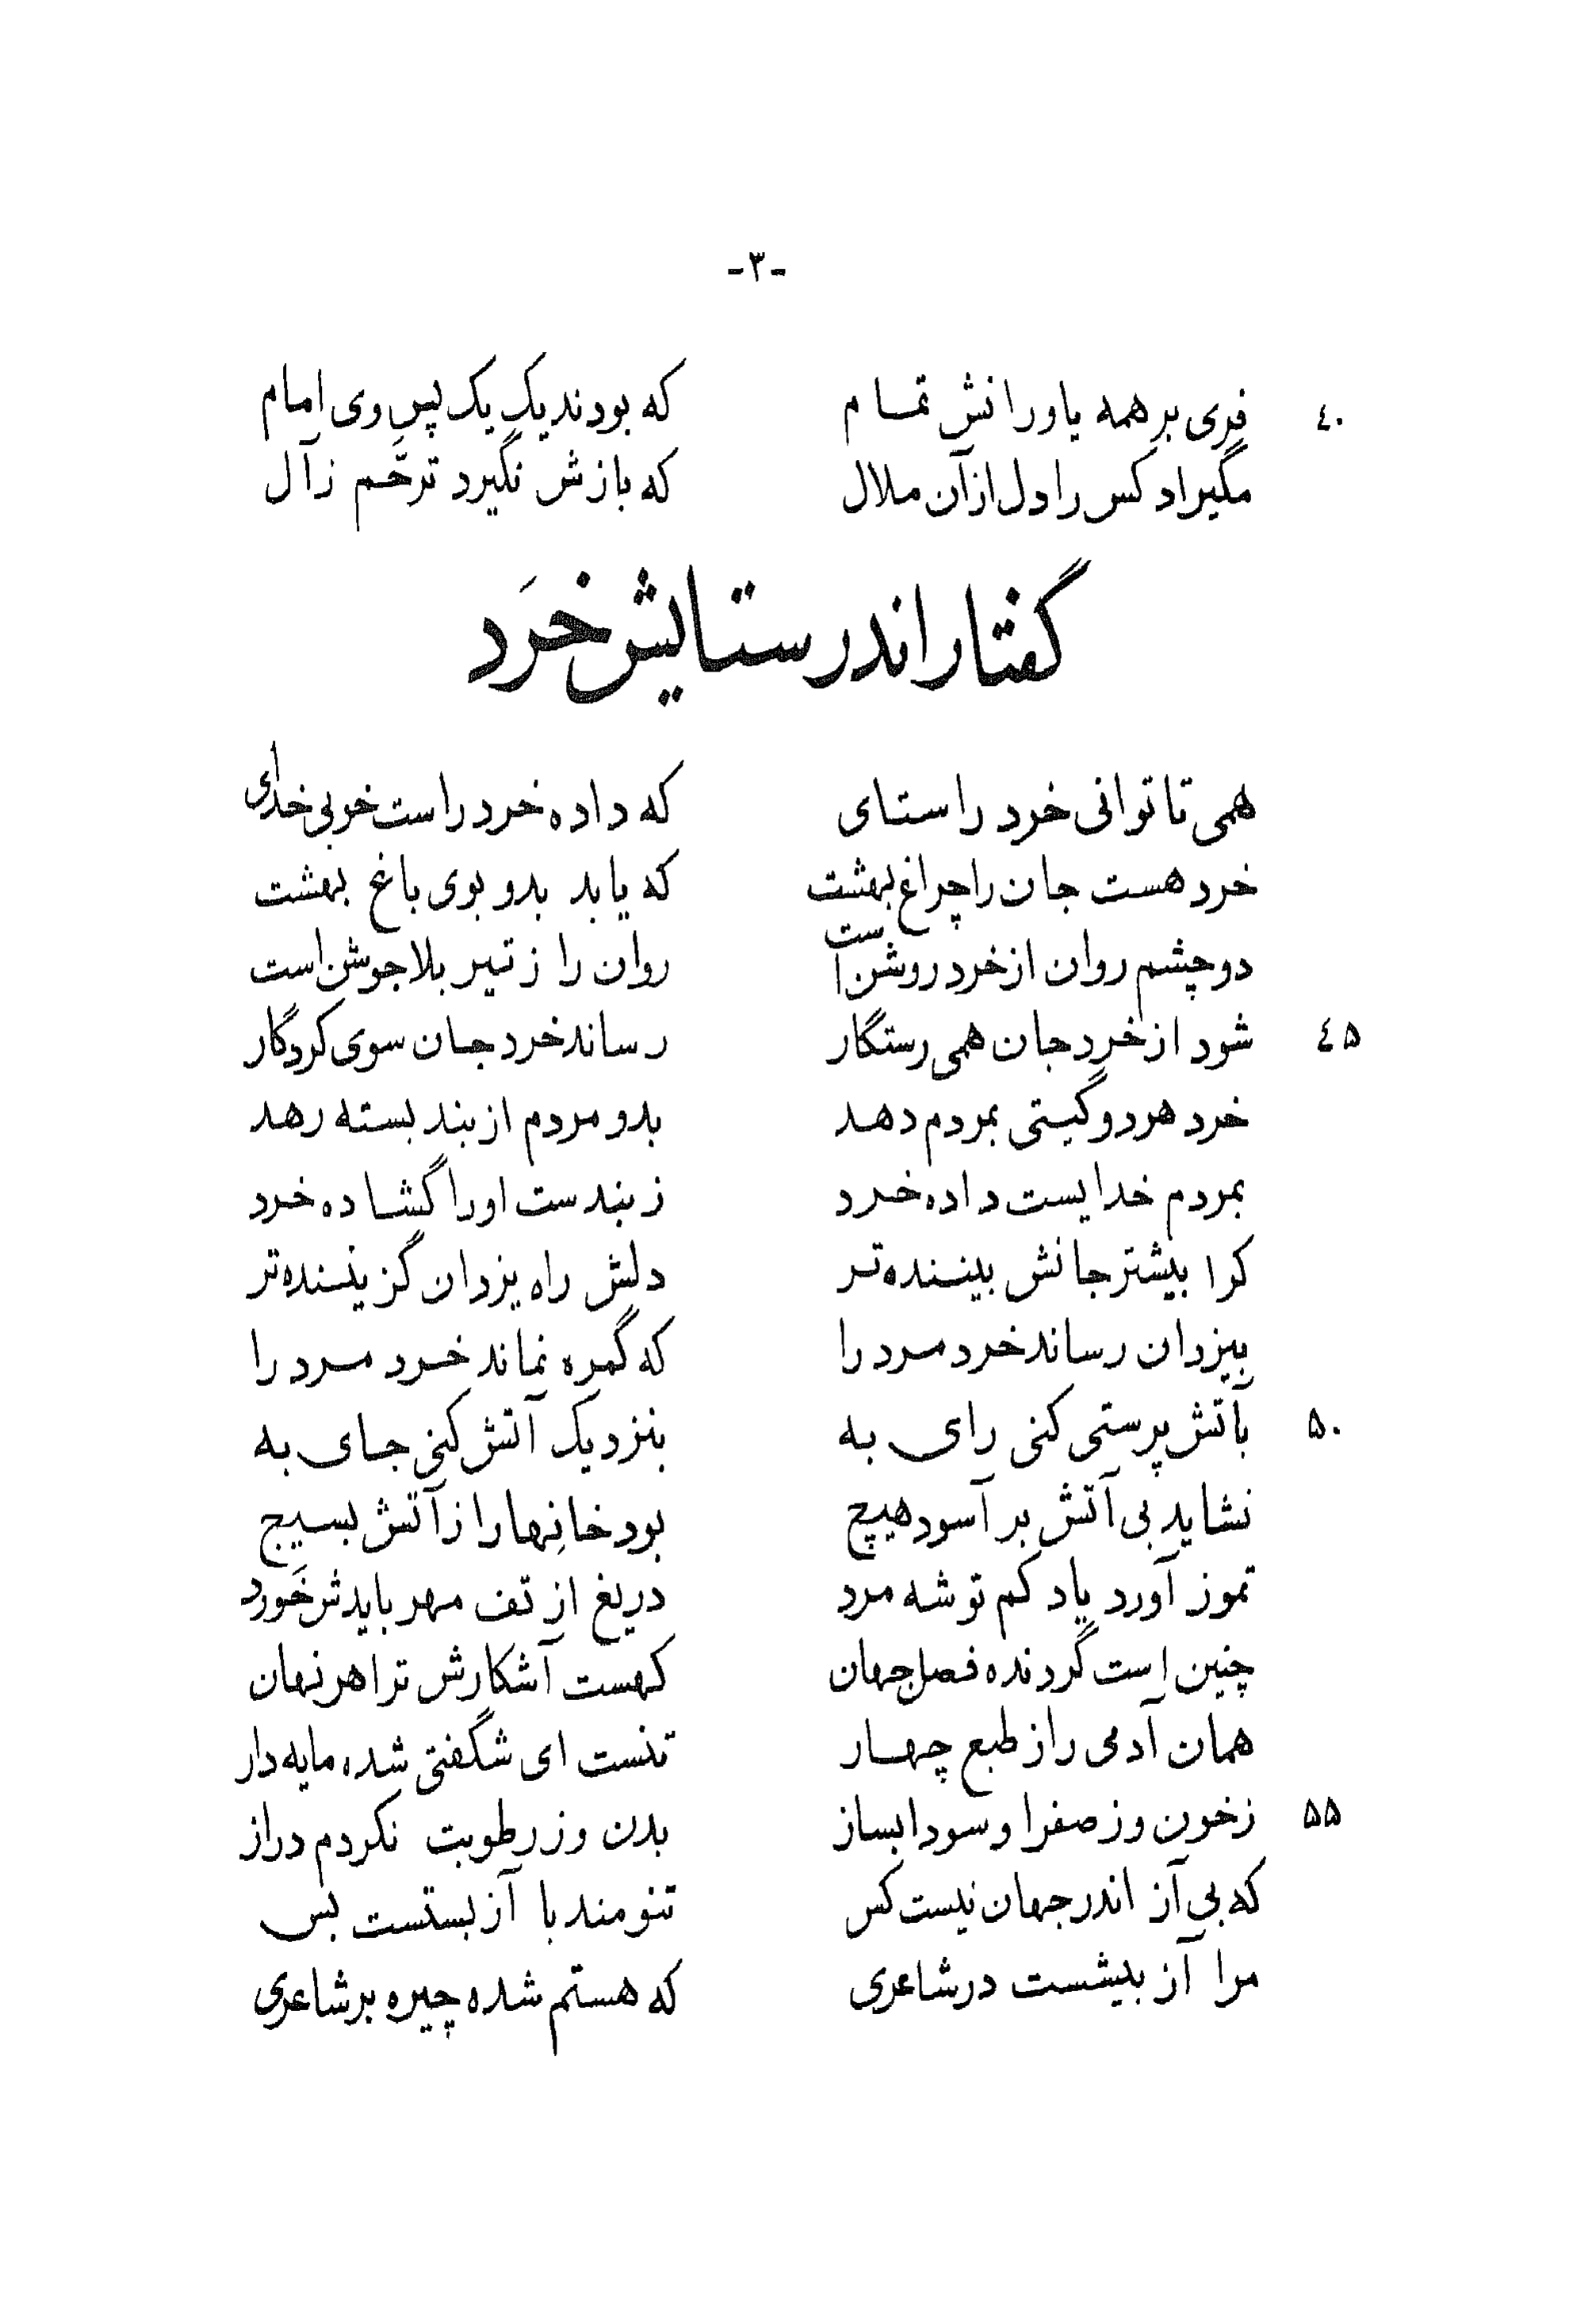 -۳-
۴۰ فری بر همه یاورانش تمام که بودند یک یک پس وی امام
مگیراد کس را دل از آن ملال که بازش نگیرد ترحّم ز آل
گفتار اندر ستایش خرَد
همی تا توانی خرد را ستای که داده خرد راست خوبی خدای
خرد هست جان را چراغ بهشت که یابد بدو بوی باغ بهشت
دو چشم روان از خرد روشن است روان را ز تیر بلا جوشن است
۴۵ شود از خرد جان همی رستگار رساند خرد جان سوی کردگار
خرد هر دو گیتی بمردم دهد بدو مردم از بند بسته رهد
بمردم خدایست داده خرد ز بندست او را گشاده خرد
کرا بیشتر جانش بیننده‌تر دلش راه یزدان گزیننده‌تر
بیزدان رساند خرد مرد را که گمره نماند خرد مرد را
۵۰ بآتش پرستی کنی رای به بنزدیک آتش کنی جای به
نشاید بی آتش بر آسود هیچ بود خانِها را ز آتش بسیج
تموز آورد یاد کم توشه مرد دریغ از تف مهر بایدش خَورد
چنین است گردنده فصل جهان کهست آشکارش ترا هر نهان
همان آدمی را ز طبع چهار تنست ای شگفتی شده مایه‌دار
۵۵ ز خون وز صفرا و سودا بساز بدن وز رطوبت نکردم دراز
که بی آز اندر جهان نیست کس تنومند با آز بستست بس
مرا آز بیشست در شاعری که هستم شده چیره بر شاعری